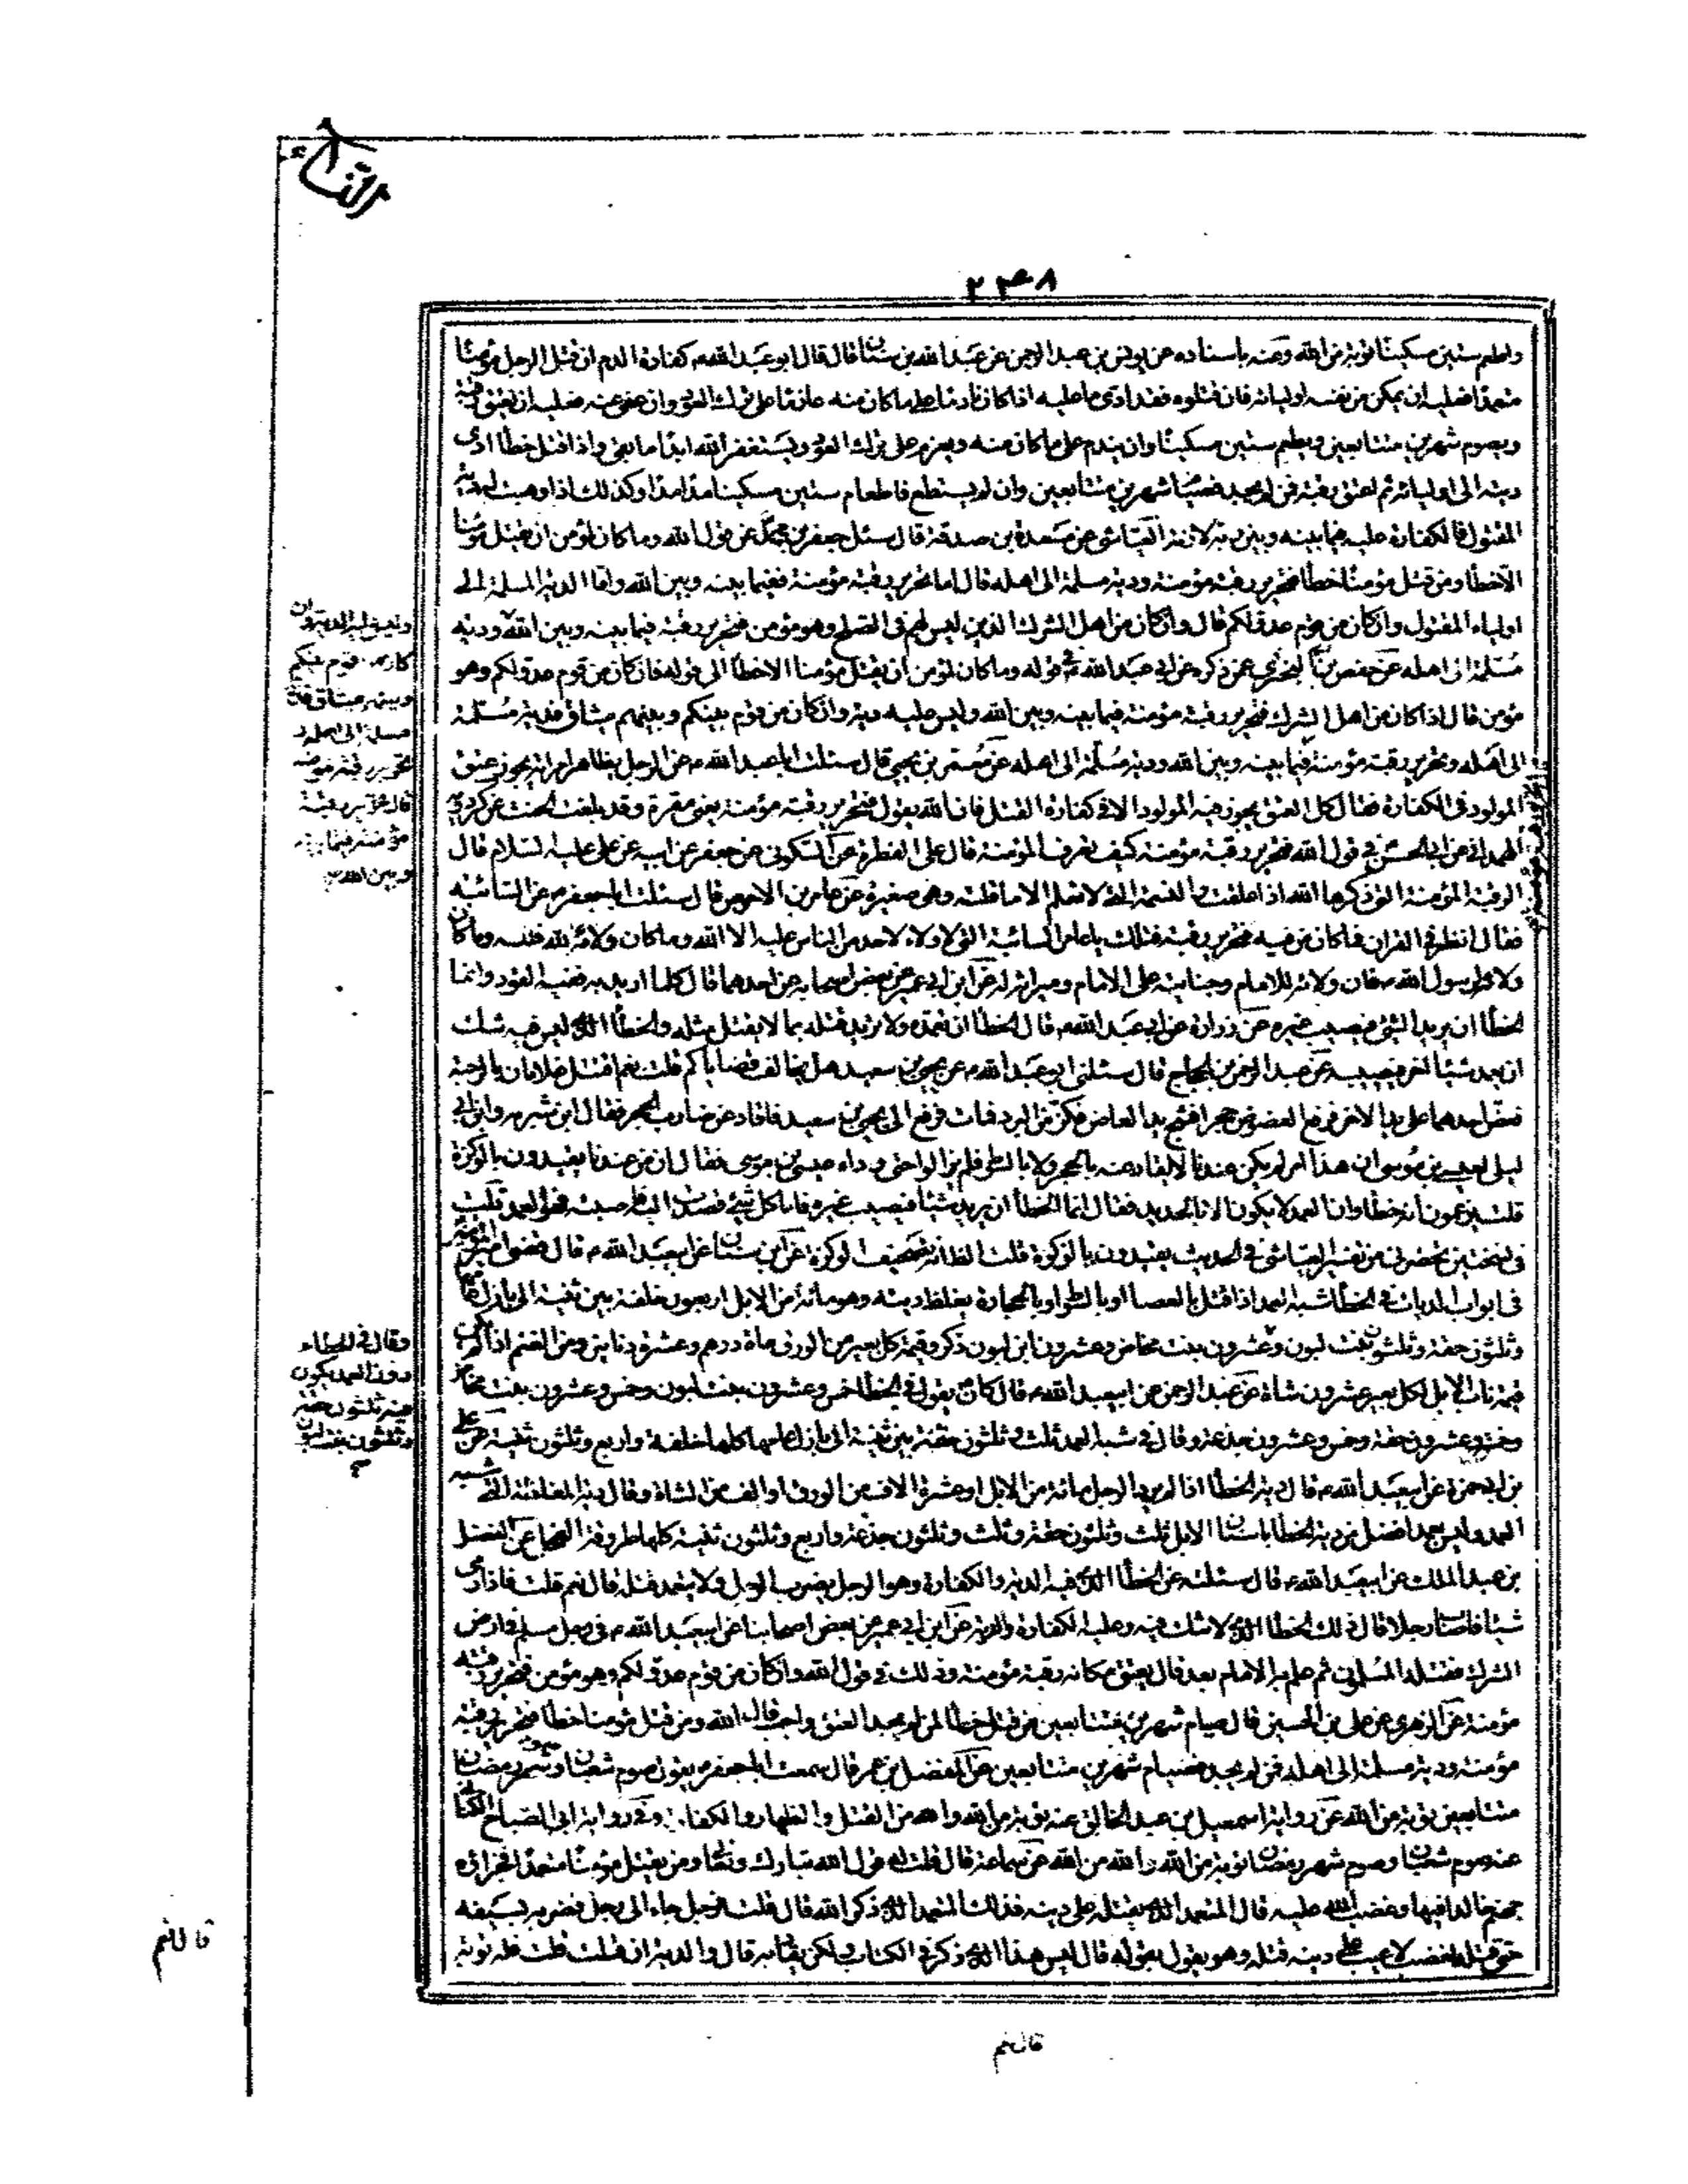 النساء
٢٣٨
واطعم ستين مسكينا توبة من الله وعنه باسناده عن يونس بن عبد الرحمن عن عبد الله بن سنان قال قال ابو عبد الله ع كفارة الدم ان قتل الرجل مؤمنا
متعمدا فعليه ان يمكن من نفسه اوليائه فان قتلوه فقد ادى ما عليه اذا كان نادما على ما كان منه عازما على ترك العود وان عفى عنه فعليه ان يعتق رقبة
ويصوم شهرين متتابعين ويطعم ستين مسكينا وان يندم على ما كان منه ويعزم على ترك العود ويستغفر الله ابدا ما بقى واذا قتل خطأ ادى
ديته الى اوليائه ثم اعتق رقبة فمن لم يجد فصيام شهرين متتابعين وان لم يستطع فاطعام ستين مسكينا مدا مدا وكذلك اذا وهبت له دية
المقتول فالكفارة عليه فيما بينه وبين ربه لازمة العياشى عن مسعدة بن صدقة قال سئل جعفر بن محمد عن قول الله وما كان لمؤمن ان يقتل مؤمنا
الا خطأ ومن قتل مؤمنا خطأ فتحرير رقبة مؤمنة ودية مسلمة الى اهله قال اما تحرير رقبة مؤمنة ففيما بينه وبين الله واما الدية المسلمة الى
اولياء المقتول وان كان من قوم عدو لكم قال وان كان من اهل الشرك الذين ليس لهم فى الصلح وهو مؤمن فتحرير رقبة فيما بينه وبين الله ودية
مسلمة الى اهله عن حفص بن البخترى عمن ذكره عن ابى عبد الله ع فى قوله وما كان لمؤمن ان يقتل مؤمنا الا خطأ الى قوله فان كان من قوم عدو لكم وهو
مؤمن قال اذا كان من اهل الشرك فتحرير رقبة مؤمنة فيما بينه وبين الله وليس عليه دية وان كان من قوم بينكم وبينهم ميثاق فدية مسلمة
الى اهله وتحرير رقبة مؤمنة فيما بينه وبين الله ودية مسلمة الى اهله عن معمر بن يحيى قال سئلت ابا عبد الله ع عن الرجل يظاهر امراته يجوز عتق
المولود فى الكفارة فقال كل العتق يجوز فيه المولود الا فى كفارة القتل فان الله يقول فتحرير رقبة مؤمنة يعنى مقرة وقد بلغت الحنث عن كردويه
الهمدانى عن ابى الحسن ع فى قول الله فتحرير رقبة مؤمنة كيف تعرف المؤمنة قال على الفطرة عن السكونى عن جعفر عن ابيه عن على عليه السلام قال
الرقبة المؤمنة التى ذكرها الله اذا عقلت والنسمة التى لا تعلم الا ما قلته وهى صغيرة عن عامر بن الاحوص قال سئلت ابا جعفر ع عن السائبة
فقال انظر فى القران فما كان فيه فتحرير رقبة فتلك يا عامر السائبة التى لا ولاء لاحد من الناس عليه الا الله وما كان ولائه لله فلله وما كان
ولائه لرسول الله ص فان ولائه للامام وجنايته على الامام وميراثه له عن ابن ابى عمير عن بعض اصحابه عن احدهما قال كلما اريد به ففيه القود وانما
الخطأ ان يريد الشئ فيصيب غيره عن زرارة عن ابى عبد الله ع قال الخطأ ان تعمده ولا تريد قتله بما لا يقتل مثله والخطأ الذى ليس فيه شك
ان تعمد شيئا اخر فيصيبه عن عبد الرحمن بن الحجاج قال سئلنى ابو عبد الله ع عن يحيى بن سعيد هل يخالف قضاياكم قلت نعم اقتتل غلامان بالرحبة
فعض احدهما على يد الاخر فرفع المعضوض حجرا فشج يد العاض فكز من البرد فمات فرفع الى يحيى بن سعيد فاقاد من ضارب الحجر فقال ابن شبرمة وابن ابى
ليلى لعيسى بن موسى ان هذا امر لم يكن عندنا لا يقاد عنه بالحجر ولا بالسوط فلم يزالوا حتى وداه عيسى بن موسى فقال ان من عندنا يقيدون بالوكزة
قلت يزعمون انه خطأ وان العمد لا يكون الا بالحديد فقال انما الخطأ ان يريد شيئا فيصيب غيره فاما كل شئ قصدت اليه فاصبته فهو العمد قلت
فى نسختين تحضرنى من تفسير العياشى فى الحديث يقيدون بالوكزة قلت الظاهر تصحيف الوكزة عن ابن سنان عن ابى عبد الله ع قال قضى امير المؤمنين
فى ابواب الديات فى الخطأ شبه العمد اذا قتل بالعصا او بالسوط او بالحجارة يغلظ ديته وهو مائة من الابل اربعون خلفة بين ثنية الى بازل عامها
وثلثون حقة وثلثون بنت لبون وعشرون بنت مخاض وعشرون ابن لبون ذكر وقيمة كل بعير من الورق مائة درهم وعشرة دنانير ومن الغنم اذا لم يكن
قيمة ناب الابل لكل بعير عشرون شاة عن عبد الرحمن عن ابى عبد الله ع قال كان على ع يقول فى الخطأ خمس وعشرون بنت لبون وخمس وعشرون بنت مخاض
وخمس وعشرون حقة وخمس وعشرون جذعة وقال فى شبه العمد ثلث وثلثون حقة بين ثنية الى بازل عامها كلها خلفة واربع وثلثون ثنية عن على
بن ابى حمزة عن ابى عبد الله ع قال دية الخطأ اذا لم يرد الرجل مائة من الابل او عشرة الاف من الورق او الف من الشاة وقال دية المغلظة التى شبه
العمد وليس بعمد افضل من دية الخطأ باسنان الابل ثلث وثلثون حقة وثلث وثلثون جذعة واربع وثلثون ثنية كلها طروقة الفحل عن الفضل
بن عبد الملك عن ابى عبد الله ع قال سئلته عن الخطأ الذى فيه الدية والكفارة وهو الرجل يضرب الرجل ولا يتعمد قتله قال نعم قلت فاذا رمى
شيئا فاصاب رجلا قال ذلك الخطأ الذى لا شك فيه وعليه الكفارة والدية عن ابن ابى عمير عن بعض اصحابنا عن ابى عبد الله ع فى رجل مسلم فى ارض
الشرك فقتله المسلمون ثم علم به الامام بعد قال يعتق مكانه رقبة مؤمنة وذلك فى قول الله وان كان من قوم عدو لكم وهو مؤمن فتحرير رقبة
مؤمنة عن الزهرى عن على بن الحسين قال صيام شهرين متتابعين من قتل خطأ لمن لم يجد العتق واجب قال الله ومن قتل مؤمنا خطأ فتحرير رقبة
مؤمنة ودية مسلمة الى اهله فمن لم يجد فصيام شهرين متتابعين عن المفضل بن عمر قال سمعت ابا جعفر ع يقول صوم شعبان وشهر رمضان
متتابعين توبة من الله عن رواية اسمعيل بن عبد الخالق عنه توبة من الله والله من القتل والظهار والكفارة وفى رواية ابى الصباح الكنانى
عنه صوم شعبان وصوم شهر رمضان توبة من الله والله من الله عن سماعة قال قلت له قول الله تبارك وتعالى ومن يقتل مؤمنا متعمدا فجزاؤه
جهنم خالدا فيها وغضب الله عليه قال المتعمد الذى يقتله على دينه فذلك المتعمد الذى ذكر الله قال قلت فرجل جاء الى رجل فضربه بسيفه
حتى قتله لغضب لا لعيب على دينه قتله وهو يقول بقوله قال ليس هذا الذى ذكر فى الكتاب ولكن يقاد به قال والدية ان قبلت قلت فله توبة
وليس له الدية وان
كان من قوم بينكم
وبينهم ميثاق فدية
مسلمة الى اهله و
تحرير رقبة مؤمنة
قال تحرير رقبة
مؤمنة فيما بينه
وبين الله
وقال فى الخطاء
دون العمد يكون
فيه ثلثون حقة
وثلثون بنت لبون
قال نعم
قال نعم